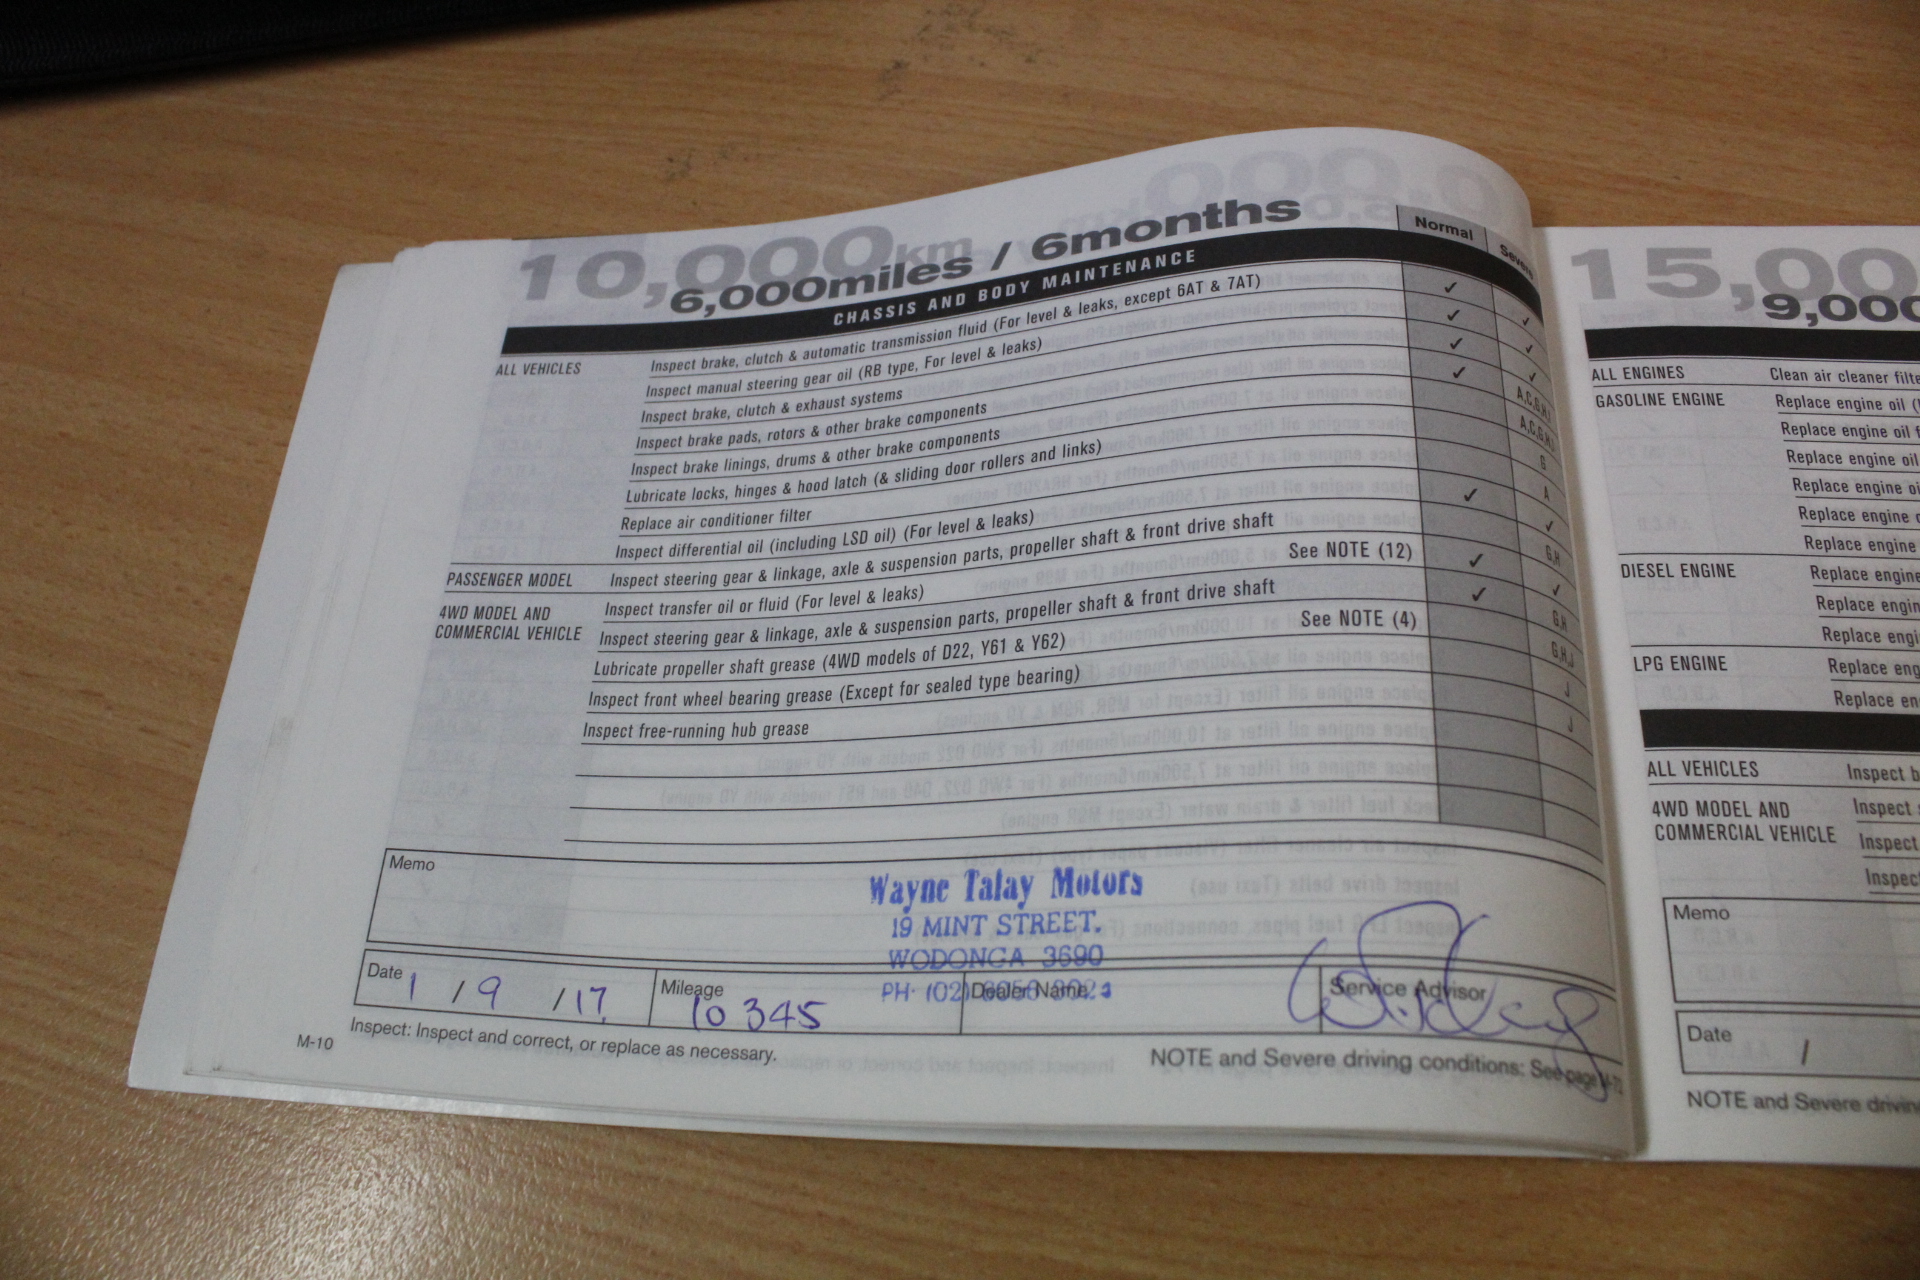 10,000km
6,000miles / 6months
Normal
Severe
CHASSIS AND BODY MAINTENANCE
ALL VEHICLES Inspect brake, clutch & automatic transmission fluid (For level & leaks, except 6AT & 7AT) ✓ ✓
Inspect manual steering gear oil (RB type, For level & leaks) ✓ ✓
Inspect brake, clutch & exhaust systems ✓ ✓
Inspect brake pads, rotors & other brake components ✓ A,C,G,H,I
Inspect brake linings, drums & other brake components A,C,G,H,I
Lubricate locks, hinges & hood latch (& sliding door rollers and links) G
Replace air conditioner filter A
Inspect differential oil (including LSD oil) (For level & leaks) ✓ ✓
PASSENGER MODEL Inspect steering gear & linkage, axle & suspension parts, propeller shaft & front drive shaft G,H
4WD MODEL AND
COMMERCIAL VEHICLE
Inspect transfer oil or fluid (For level & leaks) See NOTE (12) ✓ ✓
Inspect steering gear & linkage, axle & suspension parts, propeller shaft & front drive shaft ✓ G,H
Lubricate propeller shaft grease (4WD models of D22, Y61 & Y62) See NOTE (4) G,H,J
Inspect front wheel bearing grease (Except for sealed type bearing) J
Inspect free-running hub grease J
Memo
Wayne Talay Motors
19 MINT STREET.
WODONGA 3690
PH: (02)
Date 1 / 9 / 17
Mileage 10 345
Dealer Name
Service Advisor
M-10
Inspect: Inspect and correct, or replace as necessary.
NOTE and Severe driving conditions: See page
15,00
9,000
ALL ENGINES Clean air cleaner filte
GASOLINE ENGINE Replace engine oil (
Replace engine oil f
Replace engine oil
Replace engine oi
Replace engine o
Replace engine
DIESEL ENGINE Replace engine
Replace engin
Replace engi
LPG ENGINE Replace eng
Replace en
ALL VEHICLES Inspect b
4WD MODEL AND
COMMERCIAL VEHICLE
Inspect s
Inspect
Inspec
Memo
Date /
NOTE and Severe drivin